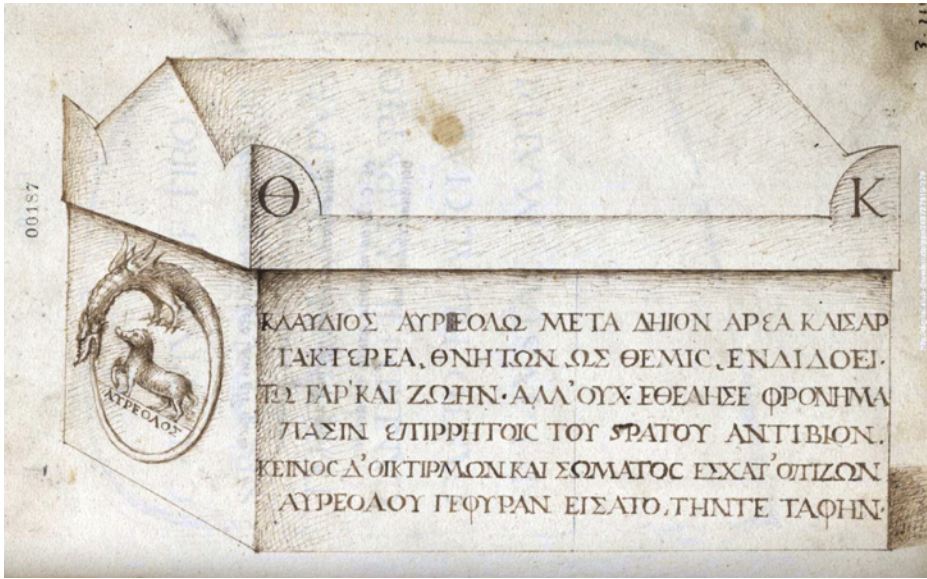 00187
Θ Κ
ΚΛΑΥΔΙΟΣ ΑΥΡΕΟΛΩ ΜΕΤΑ ΔΗΙΟΝ ΑΡΕΑ ΚΑΙΣΑΡ
ΤΑΚΤΕΡΕΑ, ΘΝΗΤΩΝ ΩΣ ΘΕΜΙC, ΕΝΔΙΔΟΕΙ·
ΤΩ ΓΑΡ' ΚΑΙ ΖΩΗΝ· ΑΛΛ' ΟΥΧ· ΕΘΕΛΗΣΕ ΦΡΟΝΗΜΑ
ΠΑΣΙΝ ΕΠΙΡΡΗΤΟΙC ΤΟΥ SΡΑΤΟΥ ΑΝΤΙΒΙΟΝ.
ΚΕΙΝΟC Δ'ΟΙΚΤΙΡΜΩΝ ΚΑΙ ΣΩΜΑΤΟC ΕΣΧΑΤ' ΟΠΙΖΩΝ
ΑΥΡΕΟΛΟΥ ΓΕΦΥΡΑΝ ΕΙΣΑΤΟ, ΤΗΝΤΕ ΤΑΦΗΝ·
ΑΥΡΕΟΛΟΣ